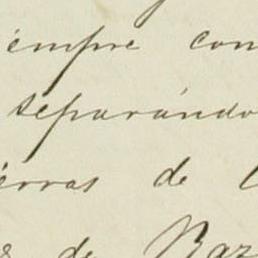 iempre con
separándo
ierras de
de Raz